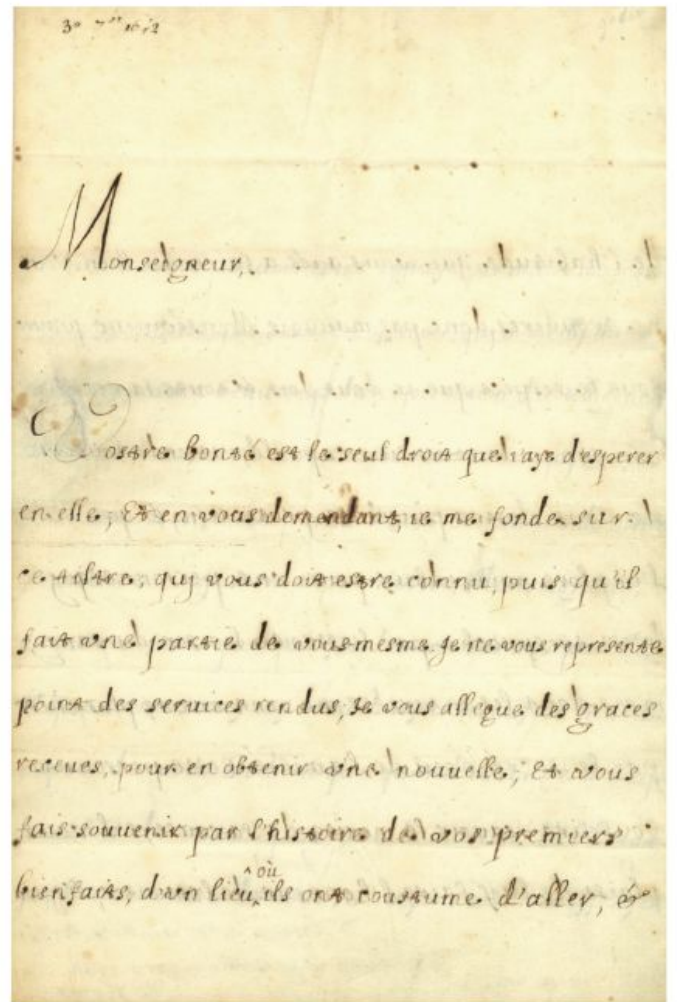 30 7bre 1672
Monseigneur,
Vostre bonté est le seul droit que i'aye d'esperer
en elle, Et en vous demendant, ie me fonde sur
ce tiltre, quj vous doit estre connu, puis qu'il
fait vne partie de vous-mesme. Je ne vous represente
point des seruices rendus, Je vous allegue des graces
receues, pour en obtenir vne nouuelle, Et vous
fais souuenir par l'histoire de vos premiers
où
bienfaits, d'vn lieu, ils ont coustume d'aller, &